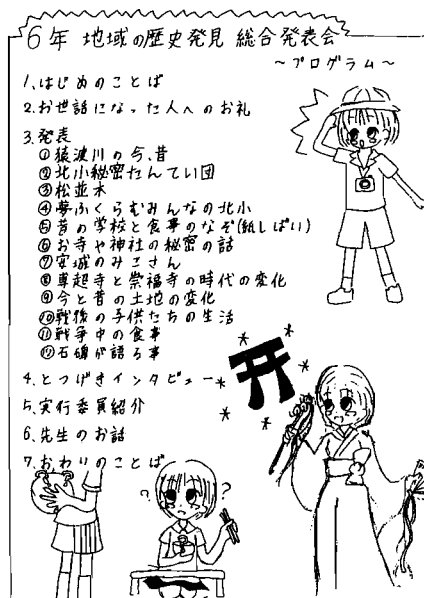 6年 地域の歴史発見 総合発表会
～プログラム～
1、はじめのことば
2、お世話になった人へのお礼
3、発表
①猿渡川の今、昔
②北小秘密たんてい団
③松並木
④夢ふくらむみんなの北小
⑤昔の学校と食事のなぞ(紙しばい)
⑥お寺や神社の秘密の話
⑦安城のみこさん
⑧専超寺と崇福寺の時代の変化
⑨今と昔の土地の変化
⑩戦後の子供たちの生活
⑪戦争中の食事
⑫石碑が語る事
4、とつげきインタビュー
5、実行委員紹介
6、先生のお話
7、おわりのことば
? ?